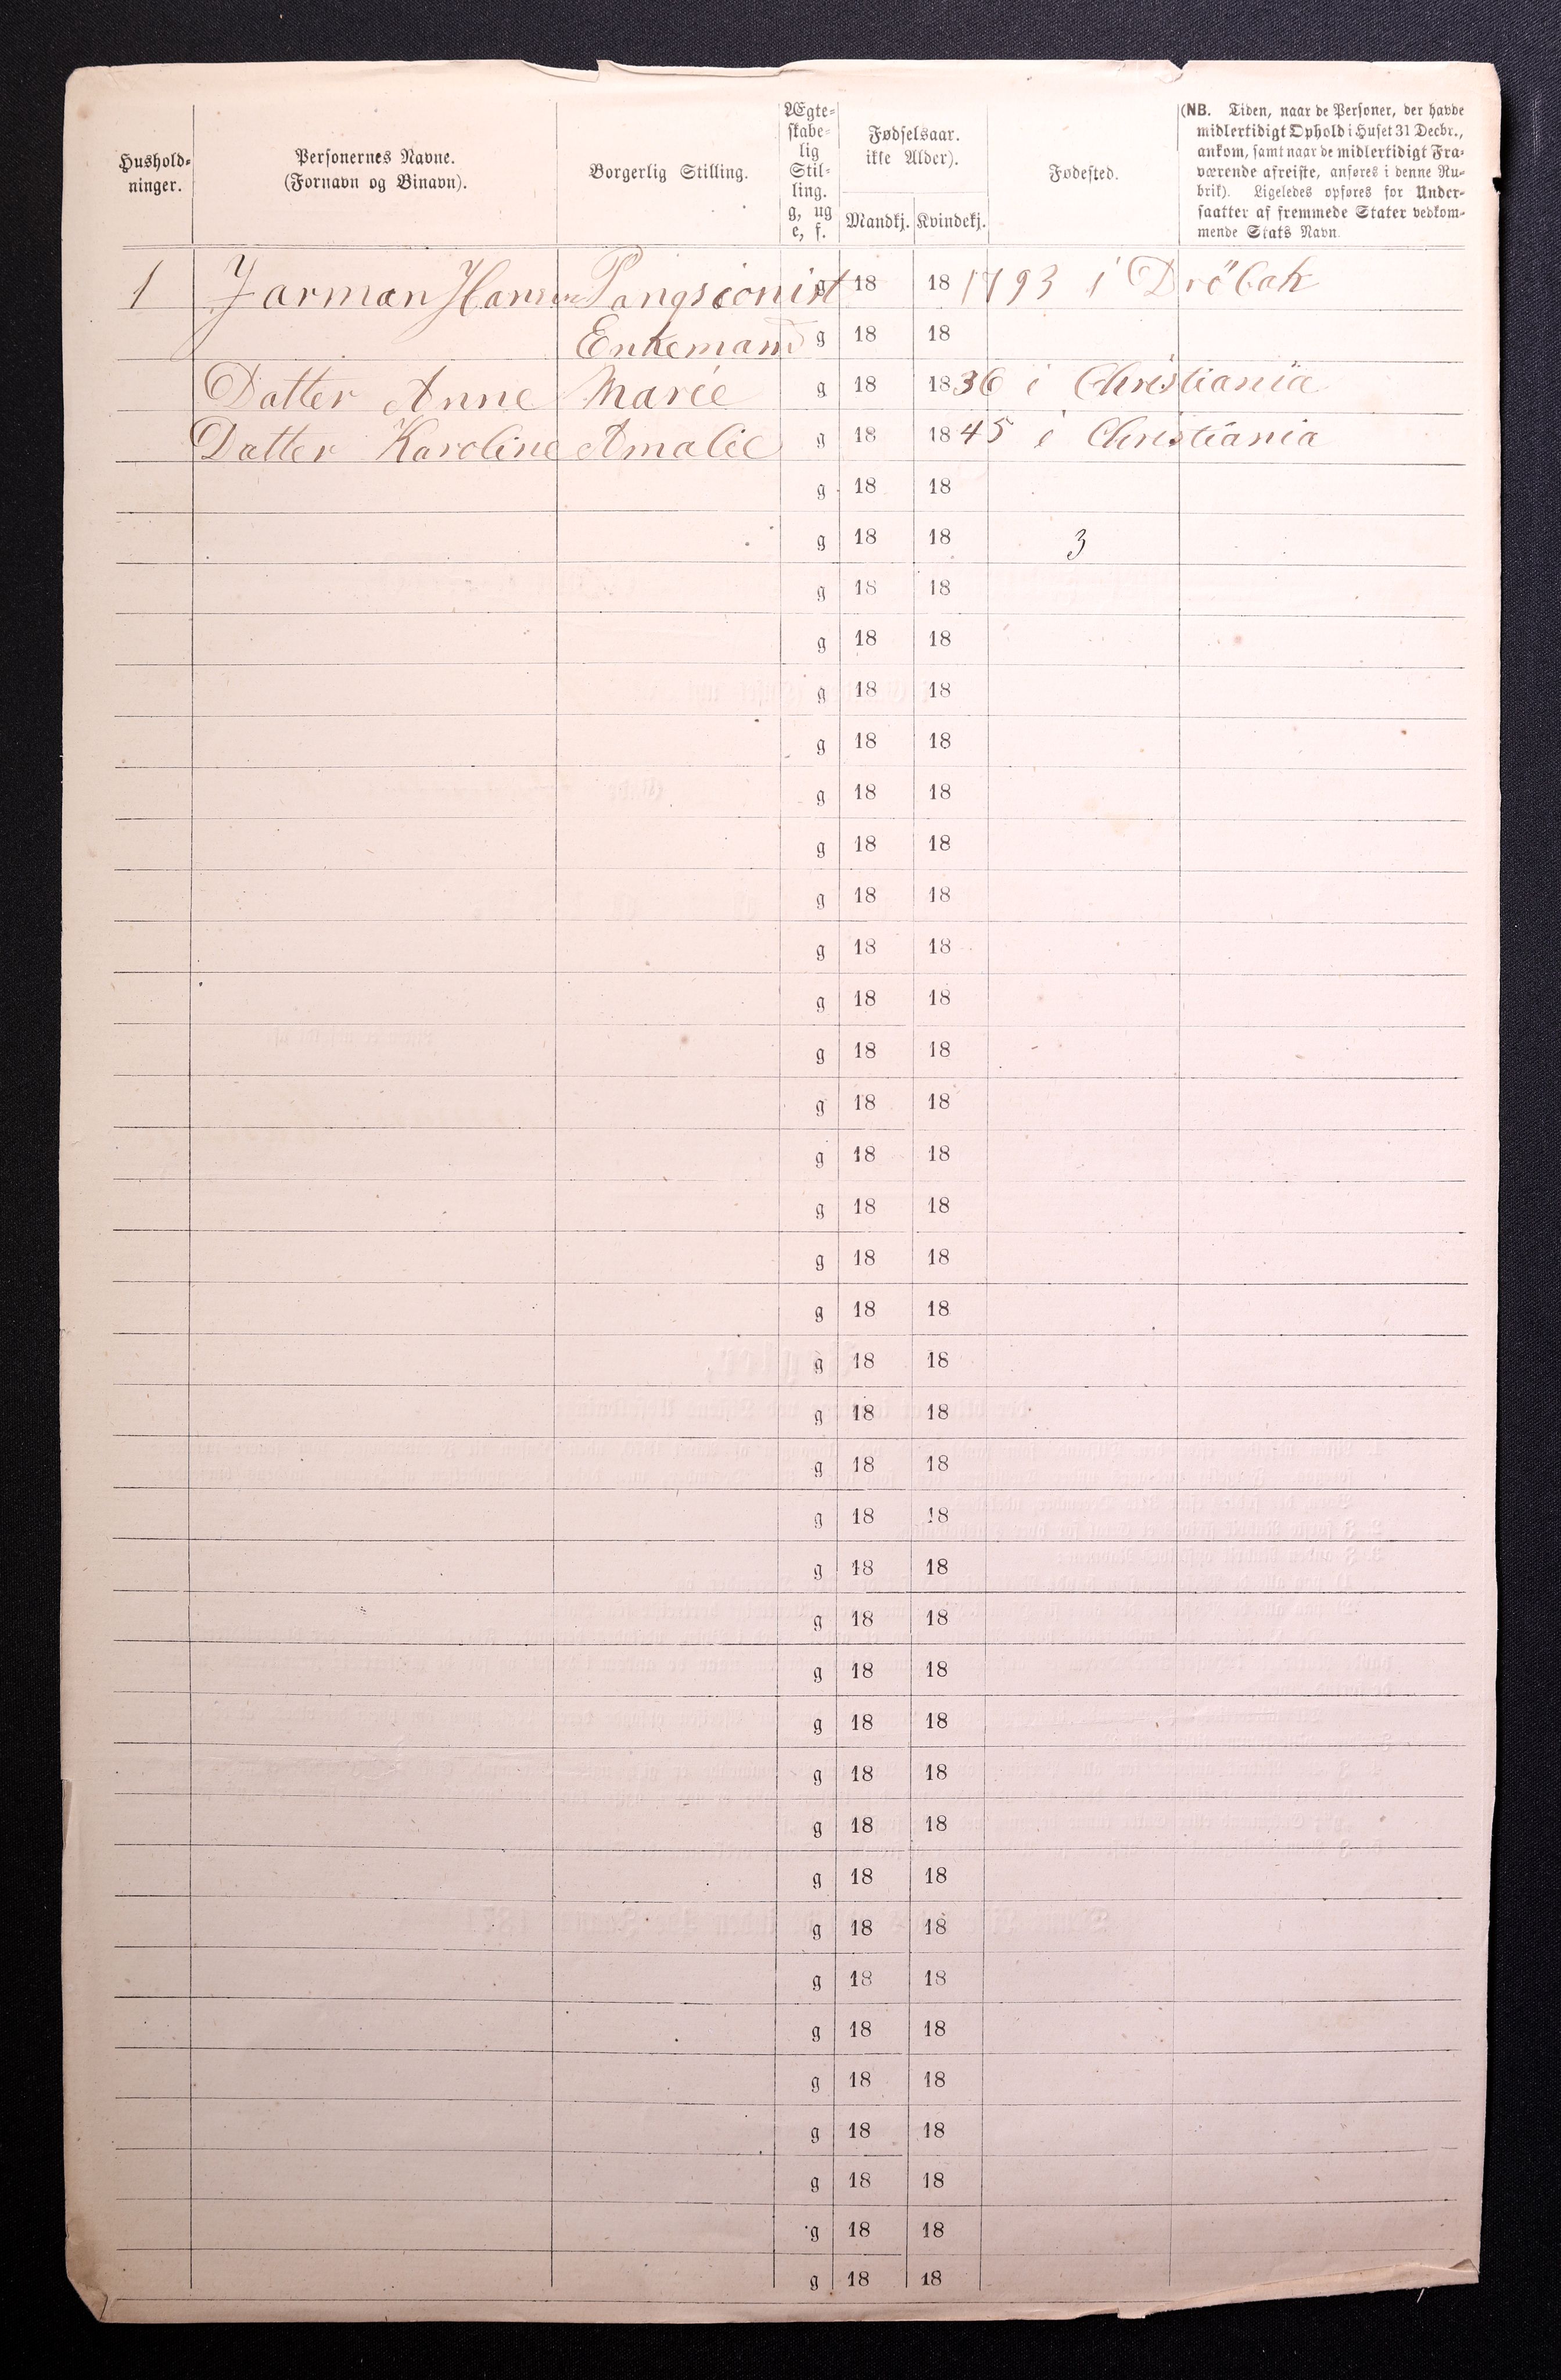 Hushold-
ninger.
Personernes Navne.
(Fornavn og Binavn).
Borgerlig Stilling.
Ægte-
skabe-
lig
Stil-
ling.
g, ug
e, f.
Fødselsaar.
ikke Alder).
Mandkj. Kvindekj.
Fødested.
(NB. Tiden, naar de Personer, der havde
midlertidigt Ophold i Huset 31 Decbr.,
ankom, samt naar de midlertidigt Fra-
værende afreiste, anføres i denne Ru-
brik). Ligeledes opføres for Under-
saatter af fremmede Stater vedkom-
mende Stats Navn.
1 Jarman Hansen Pangsionist g 18 18 1793 i Dröbak
Enkemand g 18 18
Datter Anne Marie g 18 1836 i Christiania
Datter Karoline Amalie g 18 1845 i Christiania
g 18 18
g 18 18 3
g 18 18
g 18 18
g 18 18
g 18 18
g 18 18
g 18 18
g 18 18
g 18 18
g 18 18
g 18 18
g 18 18
g 18 18
g 18 18
g 18 18
g 18 18
g 18 18
g 18 18
g 18 18
g 18 18
g 18 18
g 18 18
g 18 18
g 18 18
g 18 18
g 18 18
g 18 18
g 18 18
g 18 18
g 18 18
g 18 18
g 18 18
g 18 18
g 18 18
g 18 18